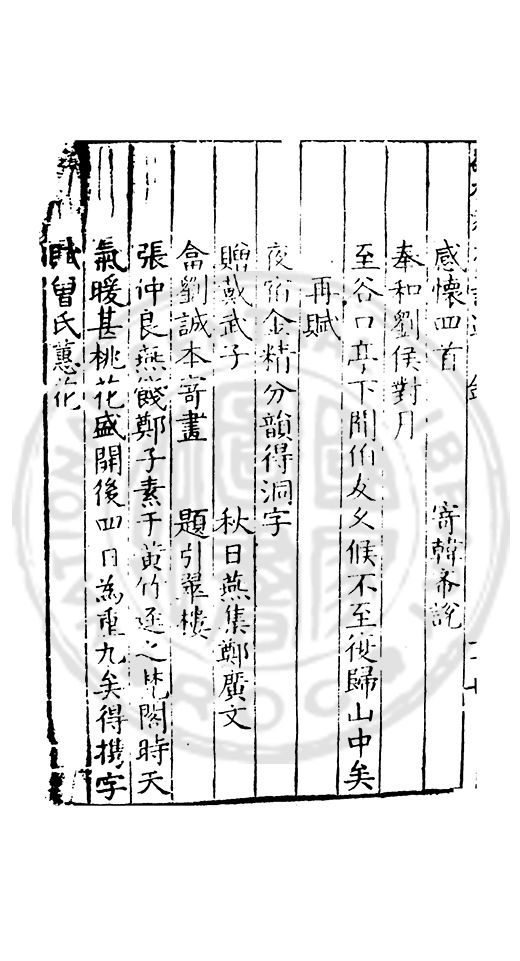 感懷四首　寄韓希說
奉和劉侯對月
至谷口亭下聞伯友久候不至復歸山中矣
再賦
夜宿金精分韻得洞字
贈戴武子　秋日燕集鄭廣文
畣劉誠本寄畫　題引翠樓
張仲良燕餞鄭子素于黃竹逕之梵閣時天
氣暖甚桃花盛開後四日為重九矣得攜字
賦曾氏蕙花